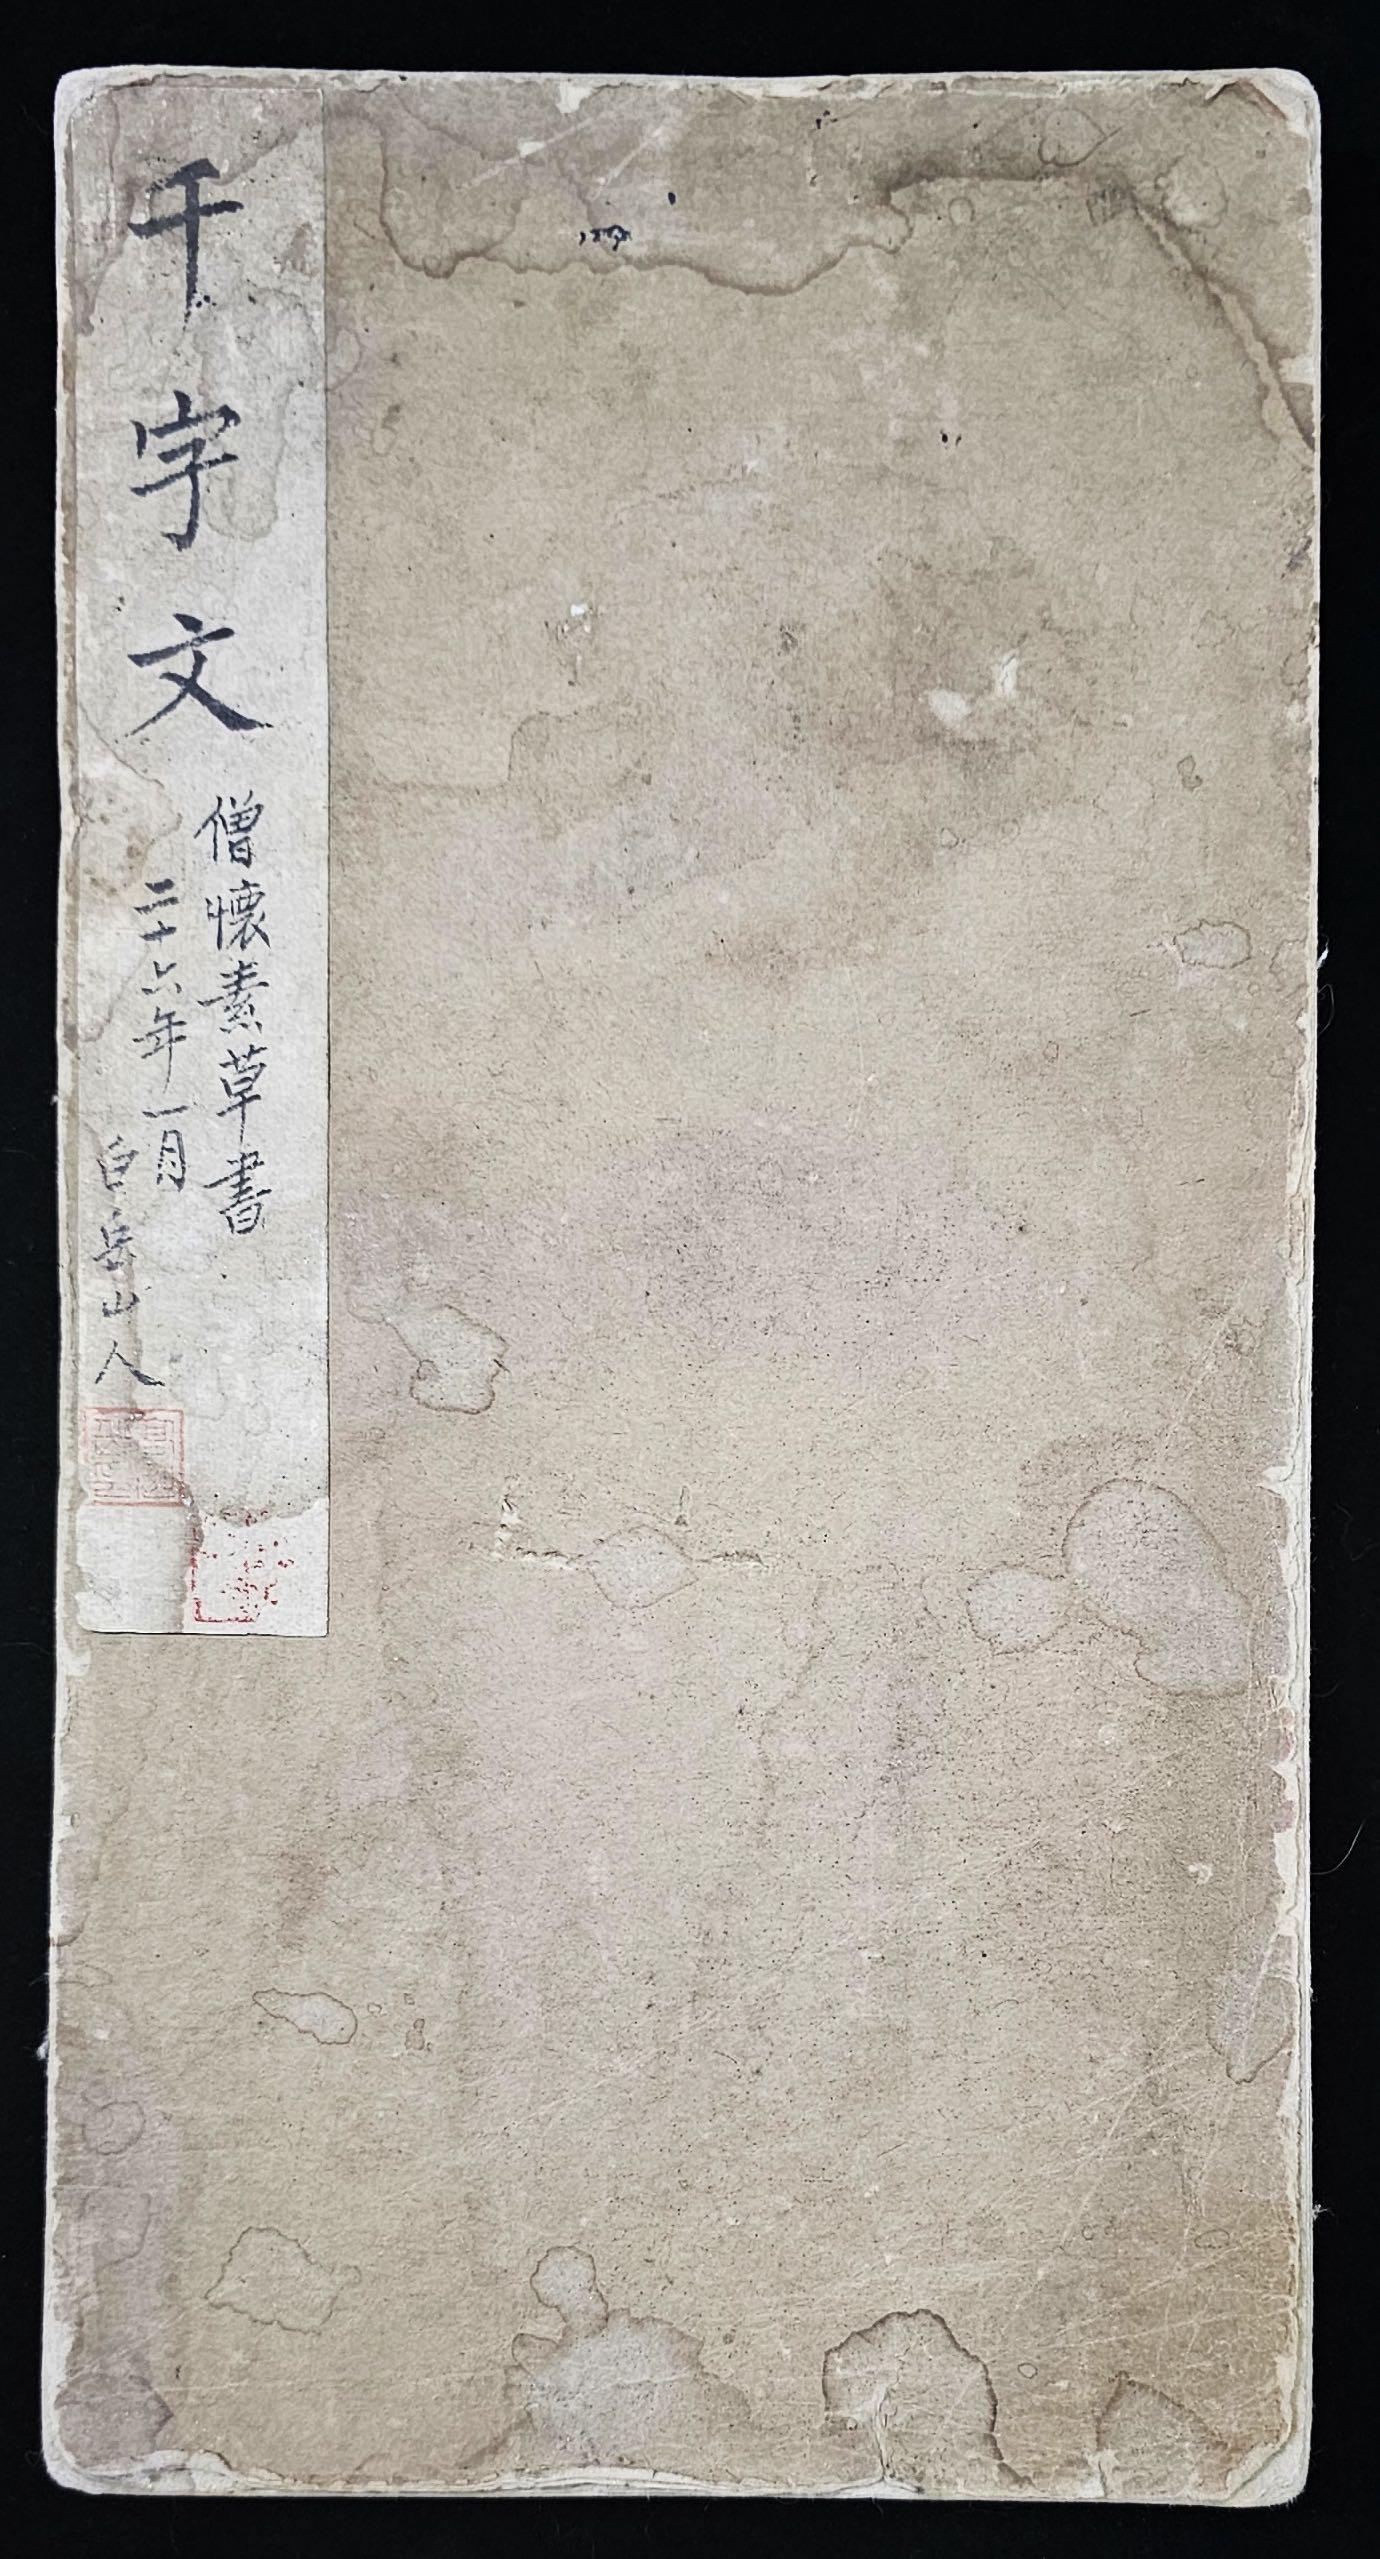 千字文
僧懷素草書
二十六年一月
白岳山人